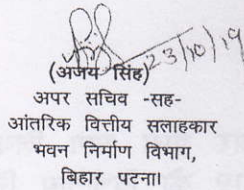 23/10/19
(अजय सिंह)
अपर सचिव -सह-
आंतरिक वित्तीय सलाहकार
भवन निर्माण विभाग,
बिहार पटना।